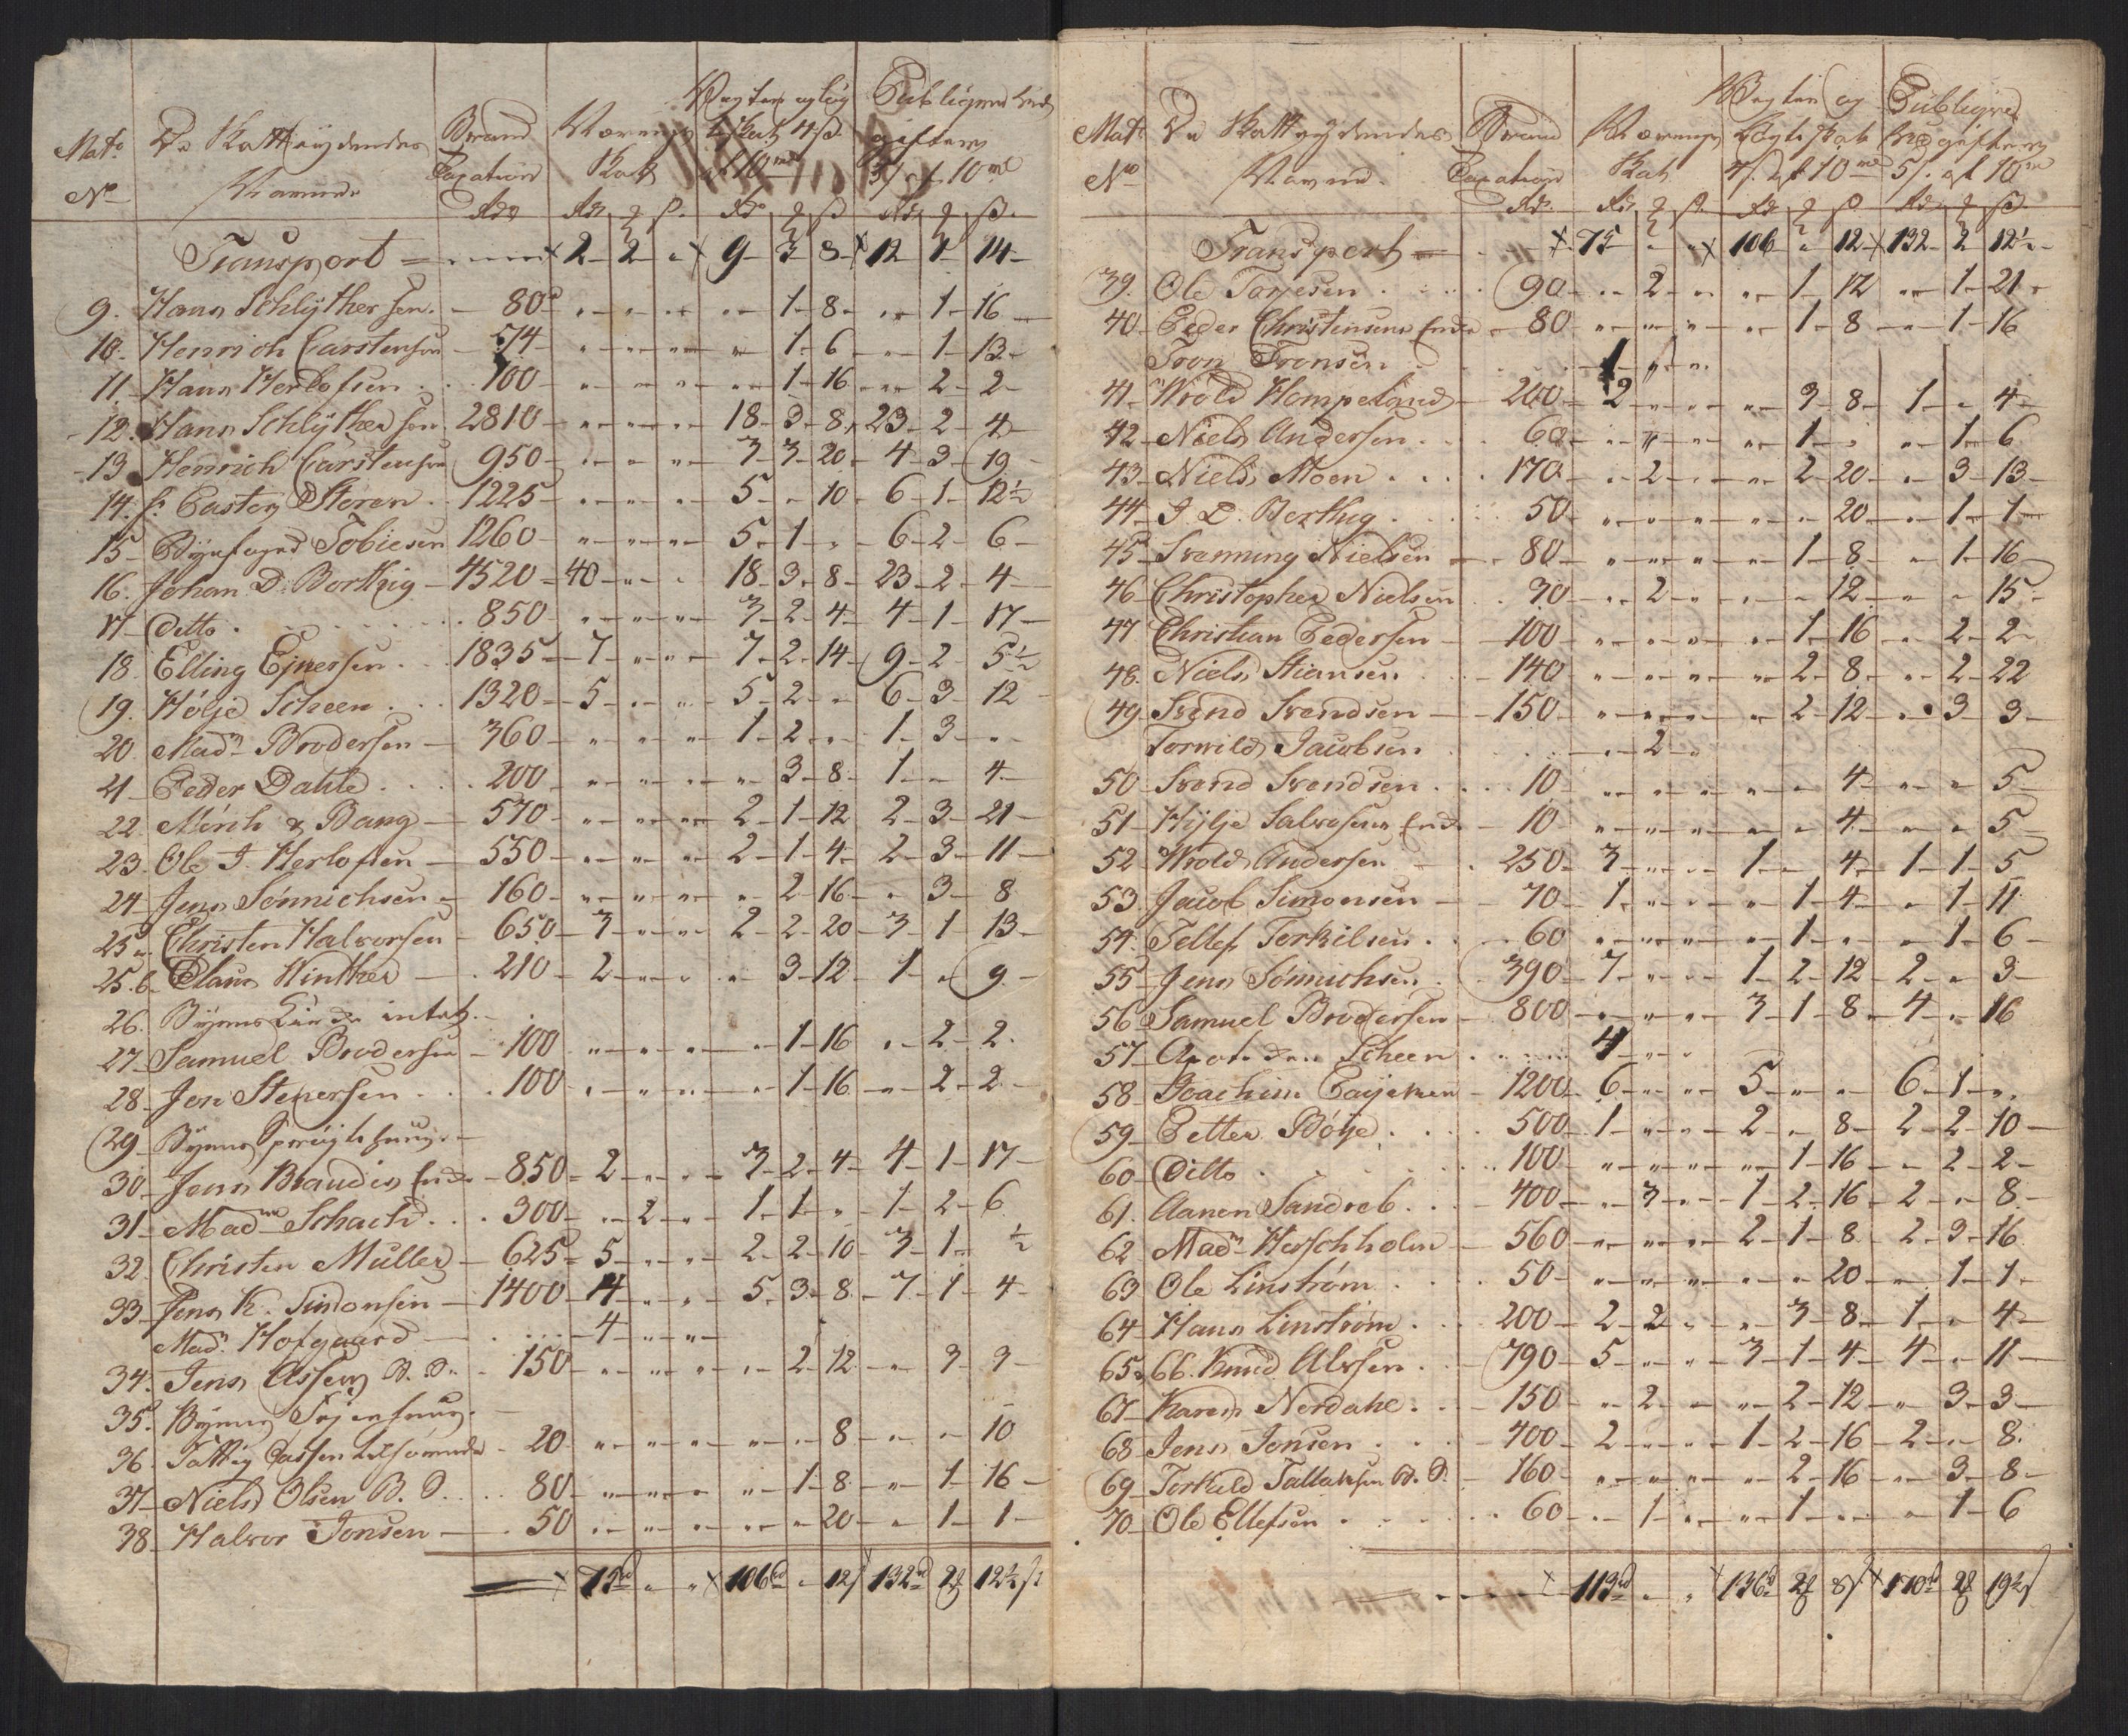 Mats No
De Skattÿdendes Navne
Brand Taxation Rdr
Nærings Skat Rdr ß
Vegter og Lÿgte Skat 4 ß af 10 rd Rdr ß
Publiqve Udgifter 5 ß af 10 rd Rdr ß
Transport = „ „ „ x 2 2 „ x 9 3 8 x 12 1 14
9. Hans Schlÿther sen. 80 „ „ „ „ 1 8 „ 1 16
10. Henrich Carstensen 74 „ „ „ „ 1 6 „ 1 13
11. Hans Herlofsen 100 „ „ „ „ 1 16 „ 2 2
12. Hans Schlÿther sen 2810 „ „ „ 18 3 8 23 2 4
13 Henrich Carstensen 950 „ „ „ 3 3 20 4 3 19
14. Sr Casten Storen 1225 „ „ „ 5 „ 10 6 1 12½
15 Bÿefoged Tobiesen 1260 „ „ „ 5 1 „ 6 2 6
16. Johan D. Borthig 4520 40 „ „ 18 3 8 23 2 4
17 Ditto 850 „ „ „ 3 2 4 4 1 17
18. Elling Ejnersen 1835 7 „ „ 7 2 14 9 2 5½
19. Hölje Scheen 1320 5 „ „ 5 2 „ 6 3 12
20. Madm Brodersen 360 „ „ „ 1 2 „ 1 3 „
21 Peder Dahle 200 „ „ „ „ 3 8 1 „ 4
22. Mörch & Bang 570 „ „ „ 2 1 12 2 3 21
23. Ole J. Herlofsen 550 „ „ „ 2 1 4 2 3 11
24 Jens Sönnichsen 160 „ „ „ „ 2 16 „ 3 8
25 a. Christen Halvorsen 650 3 „ „ 2 2 20 3 1 13
25. b. Claus Winther 210 2 „ „ „ 3 12 1 „ 9
26. Bÿens intet.
27 Samuel Brodersen 100 „ „ „ „ 1 16 „ 2 2
28. Jon Stenersen 100 „ „ „ „ 1 16 „ 2 2
29 Bÿens Spröÿte huus
30 Jens Brandis Enke 850 2 „ „ 3 2 4 4 1 17
31 Madme Schach 300 „ 2 „ 1 1 „ 1 2 6
32. Christen Müller 625 5 „ „ 2 2 10 3 1 ½
33. Jens K. Simonsen 1400 4 „ „ 5 3 8 7 1 4
Madm Hofgaard 4 „ „
34. Jens Assen B. D. 150 „ „ „ „ 2 12 „ 3 3
35. Bÿens huus.
36. Fattig Cassen 20 „ „ „ „ „ 8 „ „ 10
37 Niels Olsen B. D. 80 „ „ „ „ 1 8 „ 1 16
38. Halvor Jonsen 50 „ „ „ „ „ 20 „ 1 1
x 75 rd „ „ x 106 rd „ 12 ß x 132 rd 2 12½ ß
Mats No
De Skattÿdendes Navne.
Brand Taxation Rdr.
Nærings Skat Rdr ß
Vegter og Lÿgte Skat 4 ß. af 10 rd Rdr ß
Publiqve Udgifter 5 ß. af 10 rd Rdr ß
Transport = x 75 „ „ x 106 „ 12 x 132 2 12½
39. Ole Tarjesen 90 „ 2 „ „ 1 12 „ 1 21
40 Peder Christensens Enke 80 „ „ „ „ 1 8 „ 1 16
Tron Tronsen 1 „ „
41 Wrold Hompeland 200 2 „ „ „ 3 8 1 „ 4
42 Niels Andersen 60 „ „ „ „ 1 „ „ 1 6
43 Niels Moen 170 „ 2 „ „ 2 20 „ 3 13
44 J. D. Berthig 50 „ „ „ „ „ 20 „ 1 1
45 Svenning Nielsen 80 „ „ „ „ 1 8 „ 1 16
46 Christopher Nielsen 30 „ 2 „ „ „ 12 „ „ 15
47 Christian Pedersen 100 „ „ „ „ 1 16 „ 2 2
48. Niels Stiansen 140 „ „ „ „ 2 8 „ 2 22
49 Svend Svendsen 150 „ „ „ „ 2 12 „ 3 3
Torvild Jacobsen „ 2 „
50 Svend Svendsen 10 „ „ „ „ „ 4 „ „ 5
51 Hÿlje Salvesens Enke 10 „ „ „ „ „ 4 „ „ 5
52 Wrold Andersen 250 3 „ „ 1 „ 4 1 1 5
53 Jacob Simonsen 70 1 „ „ „ 1 4 „ 1 11
54 Tellef Terkilsen 60 „ „ „ „ 1 „ „ 1 6
55 Jens Sönnichsen 390 7 „ „ 1 2 12 2 „ 3
56 Samuel Brodersen 800 „ „ „ 3 1 8 4 „ 16
57 Scheen 4 „ „
58 Joachim 1200 6 „ „ 5 „ „ 6 1 „
59 Petter Böÿe 500 1 „ „ 2 „ 8 2 2 10
60 Ditto 100 „ „ „ „ 1 16 „ 2 2
61. Aanen Sandreb 400 „ 3 „ 1 2 16 2 „ 8
62 Madm Herschholm 560 „ „ „ 2 1 8 2 3 16
63 Ole Linström 50 „ „ „ „ „ 20 „ 1 1
64 Hans Linström 200 2 2 „ „ 3 8 1 „ 4
65 & 66. Knud Alvsen 790 5 „ „ 3 1 4 4 „ 11
67 Karen Nerdahl 150 „ 2 „ „ 2 12 „ 3 3
68 Jens Jonsen 400 2 „ „ 1 2 16 2 „ 8
69 Torkild Tallaksen B. D. 160 „ „ „ „ 2 16 „ 3 8
70 Ole Ellefsen 60 „ 1 „ „ 1 „ „ 1 6
x 113 rd „ „ x 136 rd 2 8 ß x 170 rd 2 19½ ß